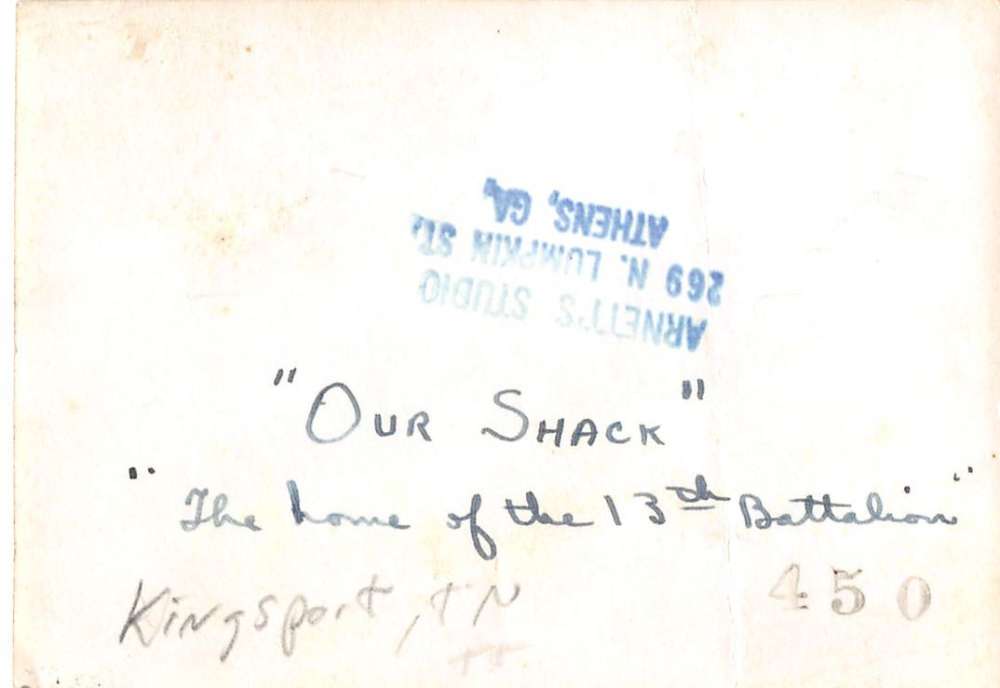 ARNETT'S STUDIO
269 N. LUMPKIN ST.
ATHENS, GA.
"OUR SHACK"
"The home of the 13th Battalion"
Kingsport, TN
450